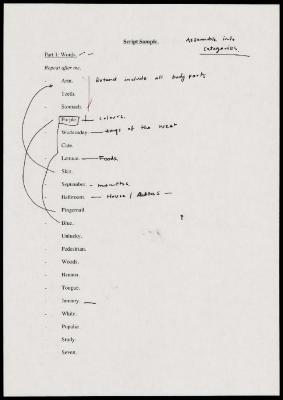 Script Sample.
Assemble into
categories.
Part 1: Words.
Repeat after me.
- Arm. Extend include all body parts
- Teeth.
- Stomach.
- Purple. colours.
- Wednesday. days of the week
- Cute.
- Lemon. Foods
- Skin.
- September. - months
- Ballroom. - House /
- Fingernail.
- Blue.
- Unlucky.
- Pedestrian.
- Woods.
- Banana.
- Tongue.
- January.
- White.
- Popular.
- Study.
- Seven.